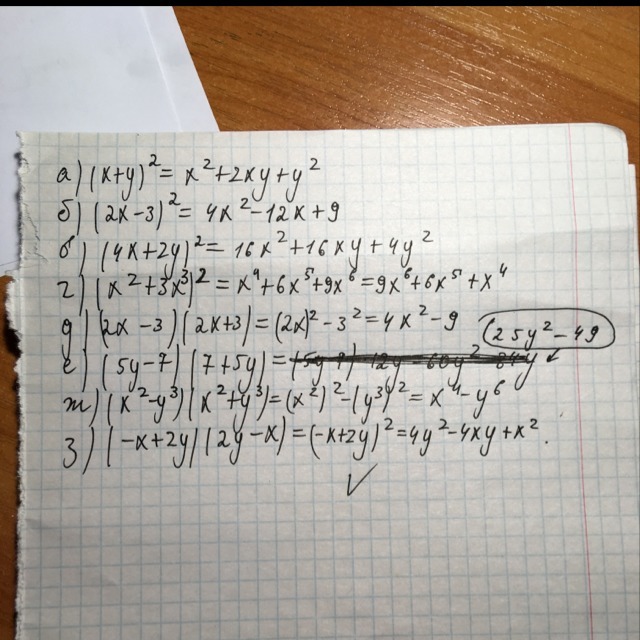 а) (x+y)² = x²+2xy+y²
б) (2x-3)² = 4x²-12x+9
в) (4x+2y)² = 16x²+16xy+4y²
г) (x²+3x³)² = x⁴+6x⁵+9x⁶ = 9x⁶+6x⁵+x⁴
д) (2x-3)(2x+3) = (2x)²-3² = 4x²-9
е) (5y-7)(7+5y) = 25y²-49
ж) (x²-y³)(x²+y³) = (x²)²-(y³)² = x⁴-y⁶
з) (-x+2y)(2y-x) = (-x+2y)² = 4y²-4xy+x².